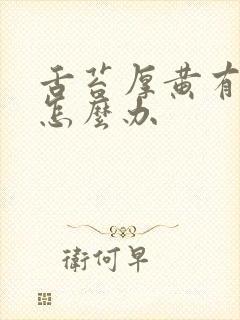 舌苔厚黄有
怎麼办
衛何早